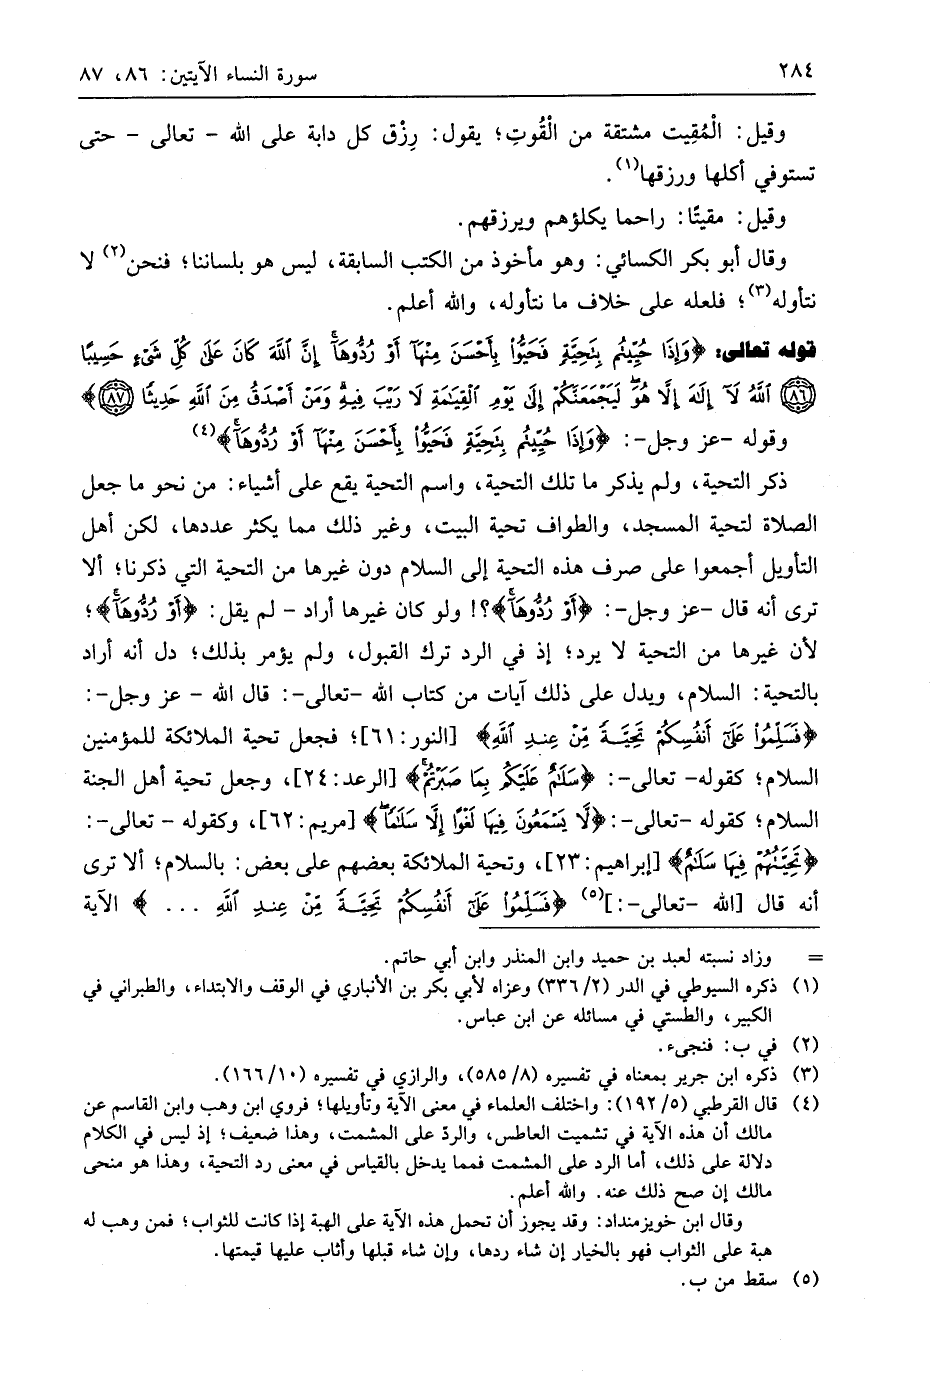 ٢٨٤
سورة النساء الآيتين: ٨٦، ٨٧
وقيل: الْمُقِيت مشتقة من الْقُوتِ؛ يقول: رِزْق كل دابة على الله - تعالى - حتى
تستوفي أكلها ورزقها(١).
وقيل: مقيتًا: راحما يكلؤهم ويرزقهم.
وقال أبو بكر الكسائي: وهو مأخوذ من الكتب السابقة، ليس هو بلساننا؛ فنحن(٢) لا
نتأوله(٣)؛ فلعله على خلاف ما نتأوله، والله أعلم.
قوله تعالى: ﴿وَإِذَا حُيِّيتُم بِتَحِيَّةٍ فَحَيُّواْ بِأَحْسَنَ مِنْهَآ أَوْ رُدُّوهَآۗ إِنَّ ٱللَّهَ كَانَ عَلَىٰ كُلِّ شَىْءٍ حَسِيبًا
﴿٨٦﴾ ٱللَّهُ لَآ إِلَٰهَ إِلَّا هُوَۚ لَيَجْمَعَنَّكُمْ إِلَىٰ يَوْمِ ٱلْقِيَٰمَةِ لَا رَيْبَ فِيهِۗ وَمَنْ أَصْدَقُ مِنَ ٱللَّهِ حَدِيثًا ﴿٨٧﴾﴾
وقوله -عز وجل-: ﴿وَإِذَا حُيِّيتُم بِتَحِيَّةٍ فَحَيُّواْ بِأَحْسَنَ مِنْهَآ أَوْ رُدُّوهَآۗ﴾(٤)
ذكر التحية، ولم يذكر ما تلك التحية، واسم التحية يقع على أشياء: من نحو ما جعل
الصلاة لتحية المسجد، والطواف تحية البيت، وغير ذلك مما يكثر عددها، لكن أهل
التأويل أجمعوا على صرف هذه التحية إلى السلام دون غيرها من التحية التي ذكرنا؛ ألا
ترى أنه قال -عز وجل-: ﴿أَوْ رُدُّوهَآۗ﴾؟! ولو كان غيرها أراد - لم يقل: ﴿أَوْ رُدُّوهَآۗ﴾؛
لأن غيرها من التحية لا يرد؛ إذ في الرد ترك القبول، ولم يؤمر بذلك؛ دل أنه أراد
بالتحية: السلام، ويدل على ذلك آيات من كتاب الله -تعالى-: قال الله - عز وجل-:
﴿فَسَلِّمُواْ عَلَىٰٓ أَنفُسِكُمْ تَحِيَّةً مِّنْ عِندِ ٱللَّهِ﴾ [النور:٦١]؛ فجعل تحية الملائكة للمؤمنين
السلام؛ كقوله- تعالى-: ﴿سَلَٰمٌ عَلَيْكُم بِمَا صَبَرْتُمْۚ﴾ [الرعد:٢٤]، وجعل تحية أهل الجنة
السلام؛ كقوله -تعالى-: ﴿لَّا يَسْمَعُونَ فِيهَا لَغْوًا إِلَّا سَلَٰمًاۖ﴾ [مريم:٦٢]، وكقوله - تعالى-:
﴿تَحِيَّتُهُمْ فِيهَا سَلَٰمٌ﴾ [إبراهيم:٢٣]، وتحية الملائكة بعضهم على بعض: بالسلام؛ ألا ترى
أنه قال [الله -تعالى-:](٥) ﴿فَسَلِّمُواْ عَلَىٰٓ أَنفُسِكُمْ تَحِيَّةً مِّنْ عِندِ ٱللَّهِ ... ﴾ الآية
= وزاد نسبته لعبد بن حميد وابن المنذر وابن أبي حاتم.
(١) ذكره السيوطي في الدر (٢/ ٣٣٦) وعزاه لأبي بكر بن الأنباري في الوقف والابتداء، والطبراني في
الكبير، والطستي في مسائله عن ابن عباس.
(٢) في ب: فنجىء.
(٣) ذكره ابن جرير بمعناه في تفسيره (٨/ ٥٨٥)، والرازي في تفسيره (١٠/ ١٦٦).
(٤) قال القرطبي (٥/ ١٩٢): واختلف العلماء في معنى الآية وتأويلها؛ فروي ابن وهب وابن القاسم عن
مالك أن هذه الآية في تشميت العاطس، والردّ على المشمت، وهذا ضعيف؛ إذ ليس في الكلام
دلالة على ذلك، أما الرد على المشمت فمما يدخل بالقياس في معنى رد التحية، وهذا هو منحى
مالك إن صح ذلك عنه. والله أعلم.
وقال ابن خويزمنداد: وقد يجوز أن تحمل هذه الآية على الهبة إذا كانت للثواب؛ فمن وهب له
هبة على الثواب فهو بالخيار إن شاء ردها، وإن شاء قبلها وأثاب عليها قيمتها.
(٥) سقط من ب.